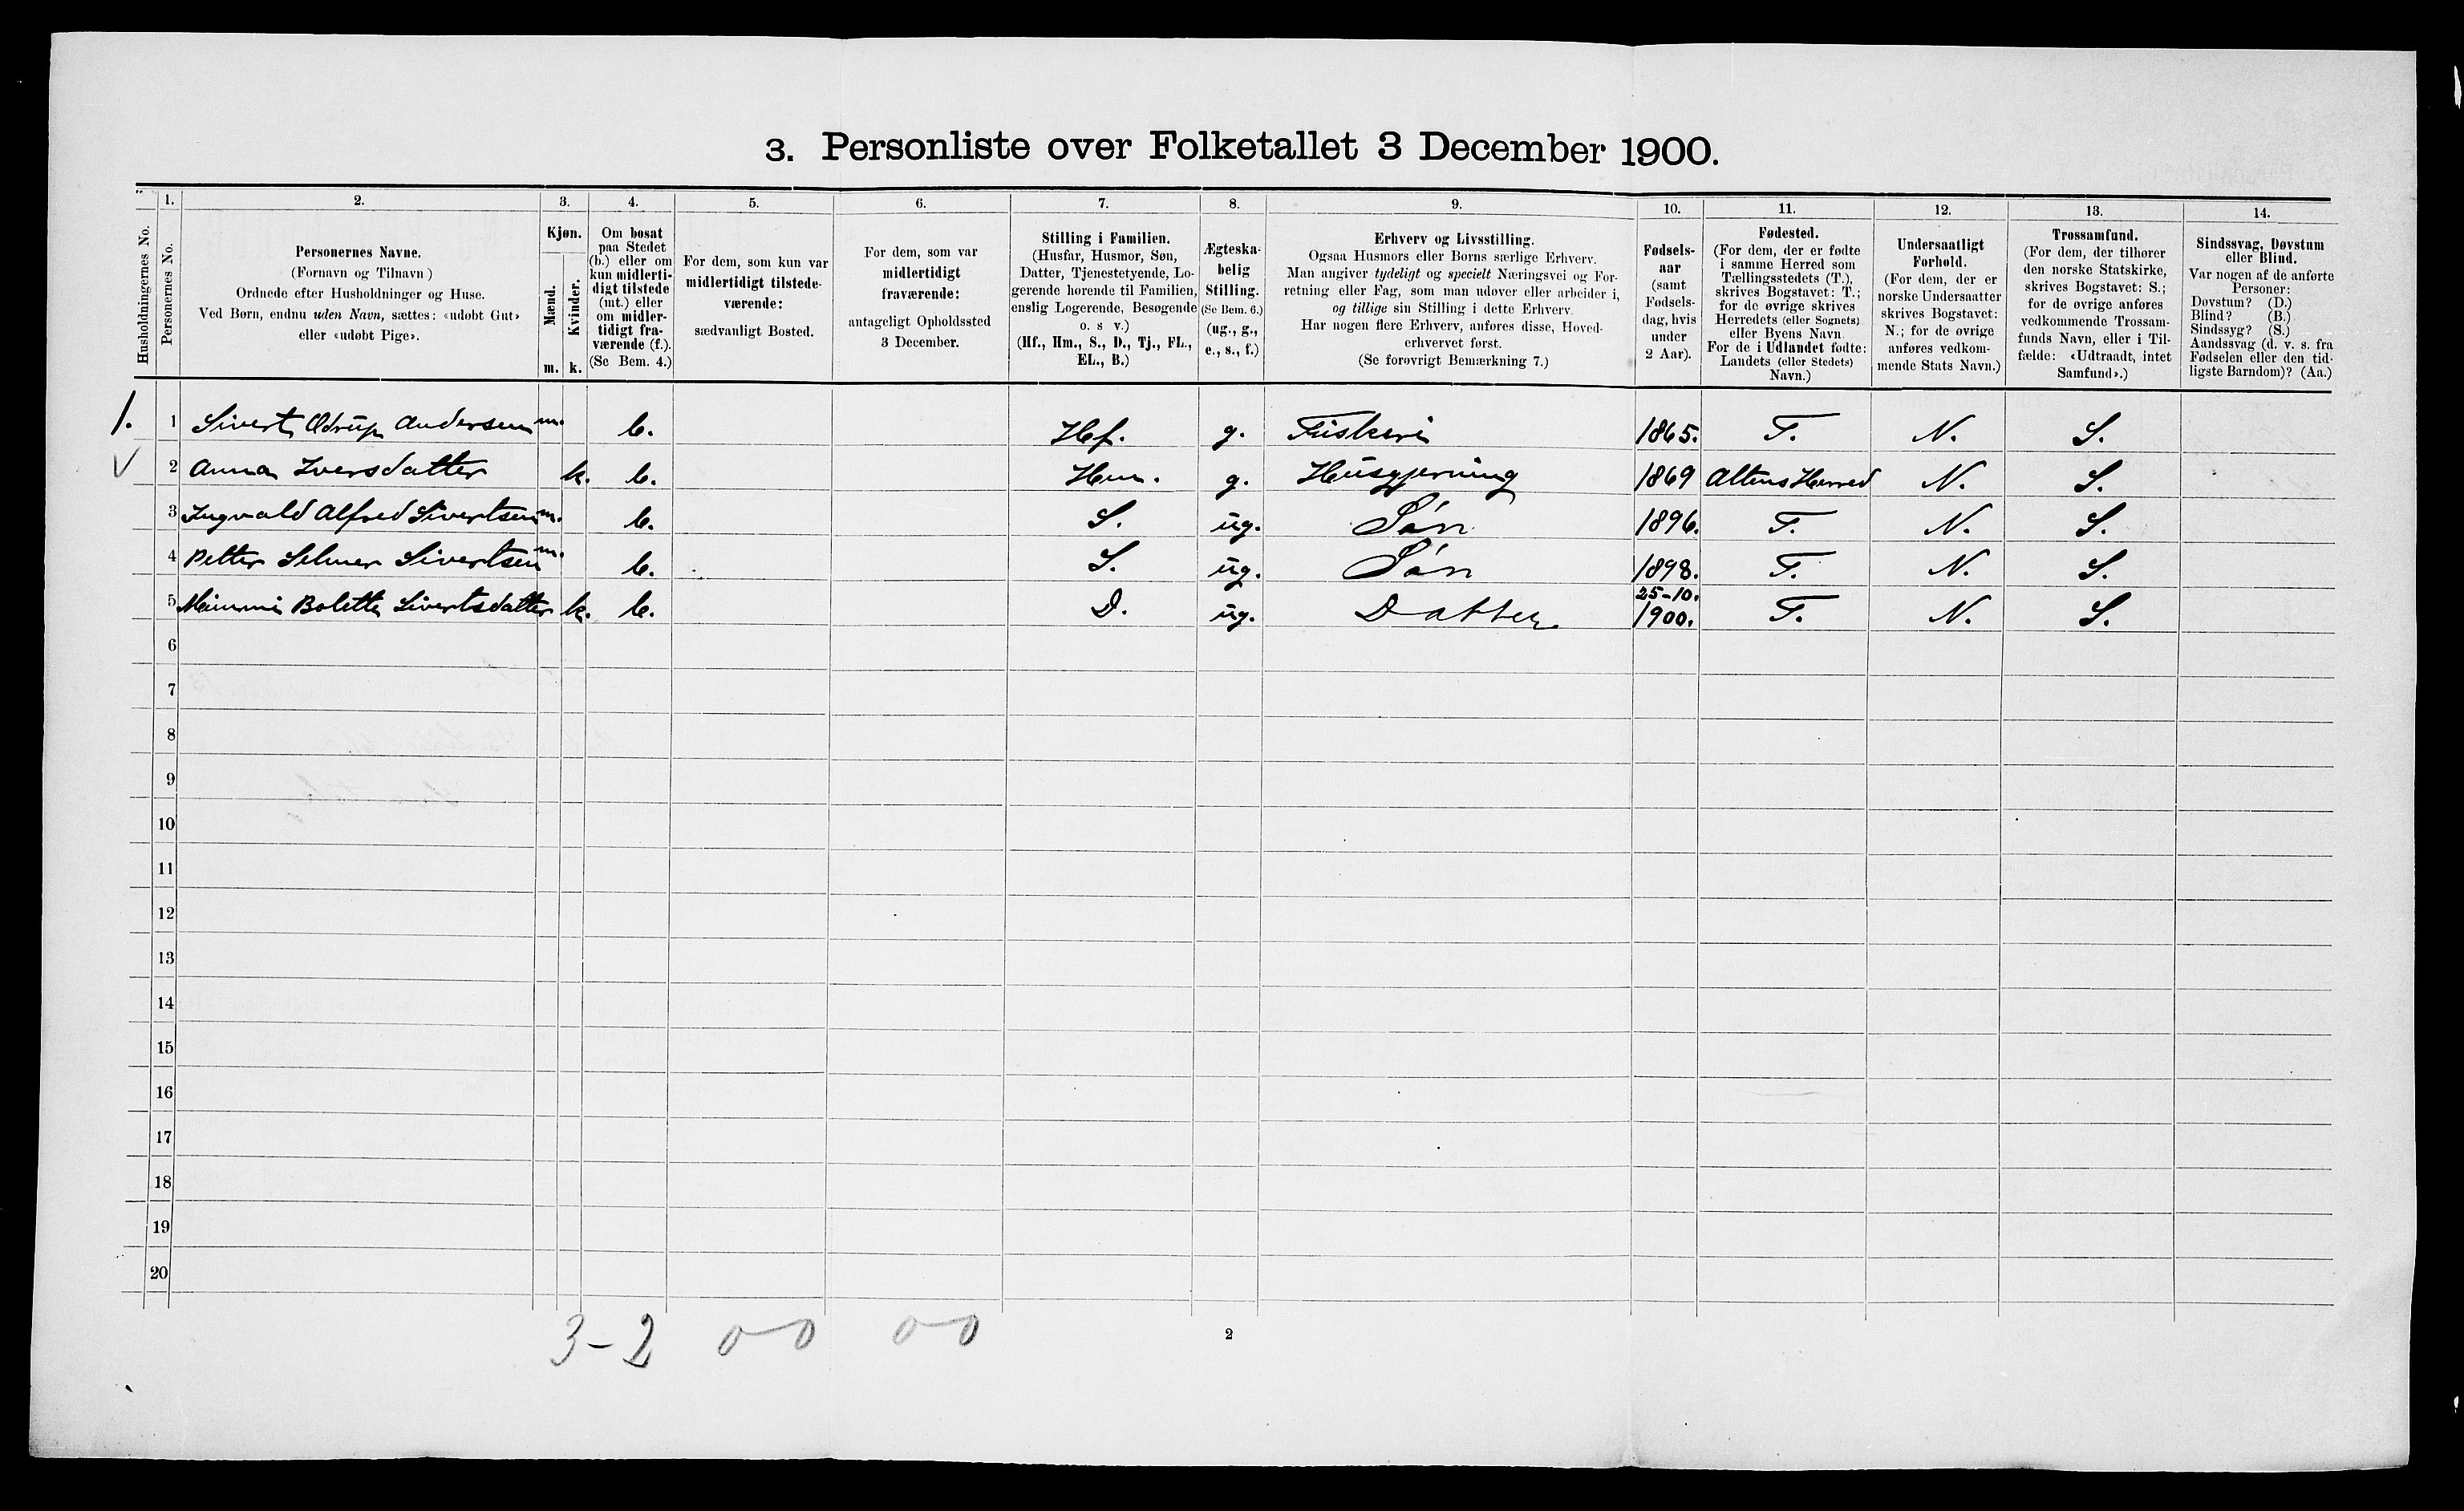 3. Personliste over Folketallet 3 December 1900.
Husholdningernes No.
1. Personernes No.
2. Personernes Navne.
(Fornavn og Tilnavn)
Ordnede efter Husholdninger og Huse.
Ved Børn, endnu uden Navn, sættes: «udøbt Gut»
eller «udøbt Pige».
3. Kjøn.
Mænd. m.
Kvinder. k.
4. Om bosat
paa Stedet
(b.) eller om
kun midlerti-
digt tilstede
(mt.) eller
om midler-
tidigt fra-
værende (f.).
(Se Bem. 4.)
5. For dem, som kun var
midlertidigt tilstede-
værende:
sædvanligt Bosted.
6. For dem, som var
midlertidigt
fraværende:
antageligt Opholdssted
3 December.
7. Stilling i Familien.
(Husfar, Husmor, Søn,
Datter, Tjenestetyende, Lo-
gerende hørende til Familien,
enslig Logerende, Besøgende
o. s v.)
(Hf., Hm., S., D., Tj., FL.,
EL., B.)
8. Ægteska-
belig
Stilling.
(Se Bem. 6.)
(ug., g.,
e., s., f.)
9. Erhverv og Livsstilling.
Ogsaa Husmors eller Børns særlige Erhverv.
Man angiver tydeligt og specielt Næringsvei og For-
retning eller Fag, som man udøver eller arbeider i,
og tillige sin Stilling i dette Erhverv.
Har nogen flere Erhverv, anføres disse, Hoved-
erhvervet først.
(Se forøvrigt Bemærkning 7.)
10. Fødsels-
aar
(samt
Fødsels-
dag, hvis
under
2 Aar).
11. Fødested.
(For dem, der er fødte
i samme Herred som
Tællingsstedets (T.),
skrives Bogstavet: T.;
for de øvrige skrives
Herredets (eller Sognets)
eller Byens Navn
For de i Udlandet fødte:
Landets (eller Stedets)
Navn.)
12. Undersaatligt
Forhold.
(For dem, der er
norske Undersaatter
skrives Bogstavet:
N.; for de øvrige
anføres vedkom-
mende Stats Navn.)
13. Trossamfund.
(For dem, der tilhører
den norske Statskirke,
skrives Bogstavet: S.;
for de øvrige anføres
vedkommende Trossam-
funds Navn, eller i Til-
fælde: «Udtraadt, intet
Samfund».)
14. Sindssvag, Døvstum
eller Blind.
Var nogen af de anførte
Personer:
Døvstum? (D.)
Blind? (B.)
Sindssyg? (S.)
Aandssvag (d. v. s. fra
Fødselen eller den tid-
ligste Barndom)? (Aa.)
1. 1 Sivert Andersen m. b. Hf. g. Fiskeri 1865. T. N. S.
2 Anna Iversdatter k. b. Hm. g. Husgjerning 1869 Altens Herred N. S.
3 Ingvald Alfred Sivertsen m. b. S. ug. Søn 1896. T. N. S.
4 Petter Selmer Sivertsen m. b. S. ug. Søn 1898. T. N. S.
5 Mimmi Bolette Sivertsdatter k. b. D. ug. Datter 25-10. 1900. T. N. S.
6
7
8
9
10
11
12
13
14
15
16
17
18
19
20
3-2 0-0 0-0
2